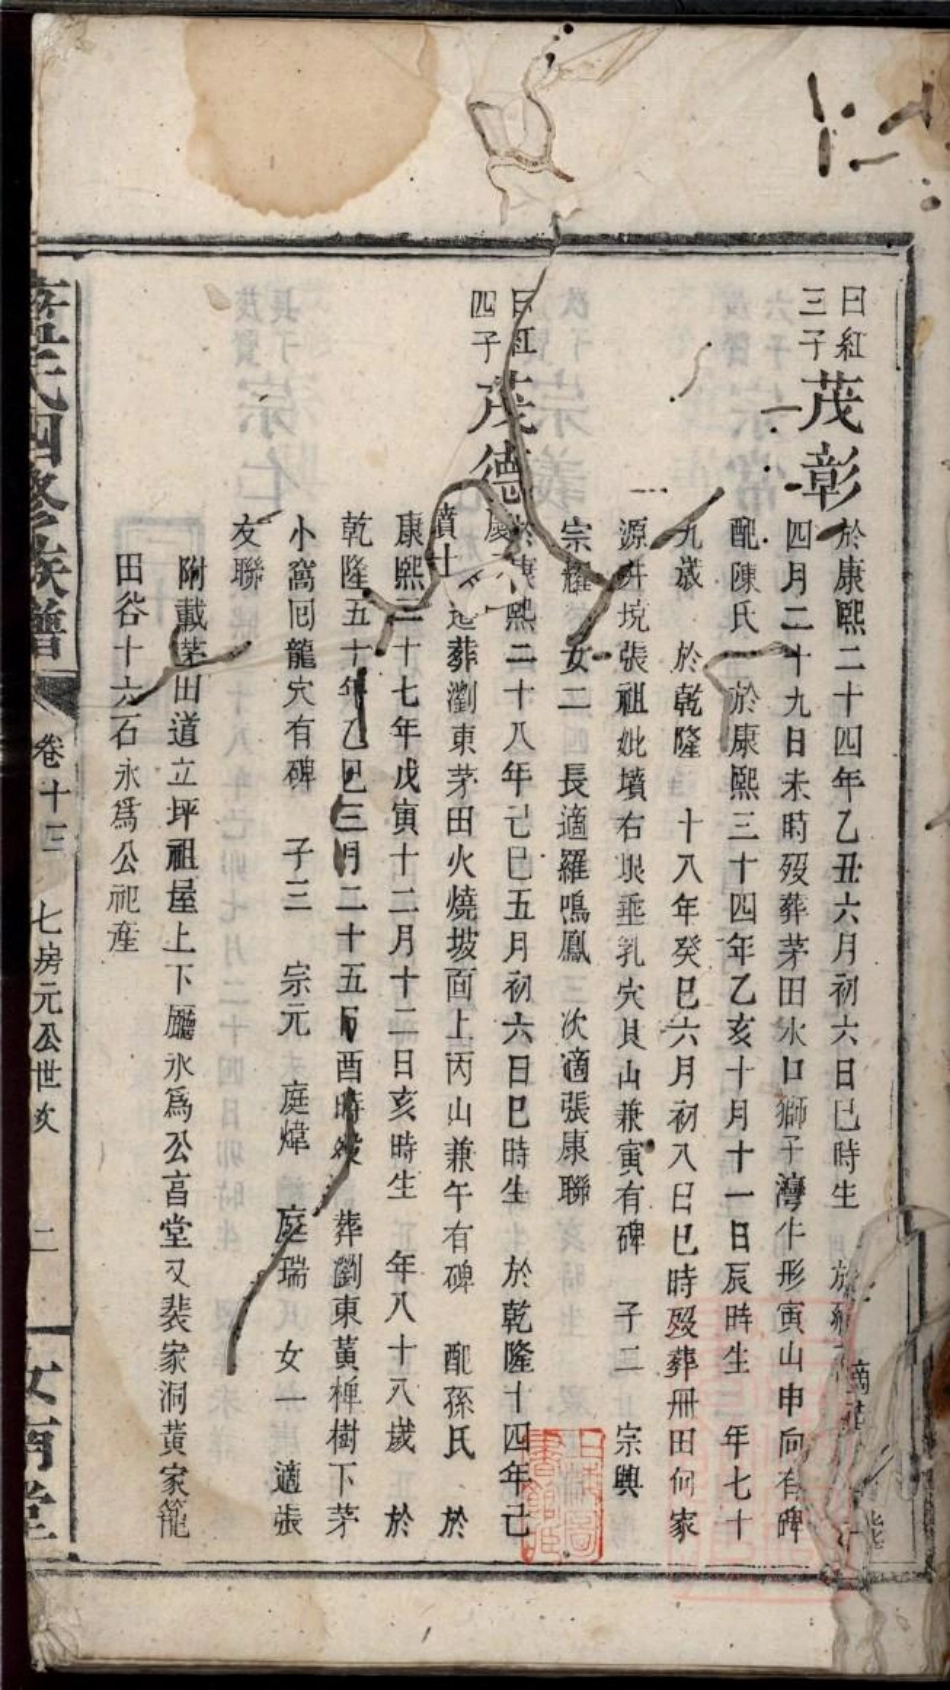 曰紅
三子
茂彰
於康熙二十四年乙丑六月初六日巳時生 於
四月二十九日未時歿葬茅田水口獅子灣牛形寅山申向有碑
配陳氏 於康熙三十四年乙亥十月十一日辰時生 年七十
九歲 於乾隆 十八年癸巳六月初八日巳時歿葬冊田何家
源井境張祖妣墳右垠垂乳穴艮山兼寅有碑 子二 宗興
宗耀 女二 長適羅鳴鳳 次適張康聯
曰紅
四子
茂德
康熙二十八年己巳五月初六日巳時生 於乾隆十四年己
葬瀏東茅田火燒坡面上丙山兼午有碑 配孫氏 於
康熙三十七年戊寅十二月十二日亥時生 年八十八歲 於
乾隆五十年乙巳三月二十五日酉時歿 葬瀏東黃椑樹下茅
小窩囘龍穴有碑 子三 宗元 庭煒 庭瑞 女一 適張
友聯
附載茅田道立坪祖屋上下廳永爲公言堂又裴家洞黃家籠
田谷十六石永爲公祀産
氏四修族譜
卷十三
七房元公世次
二